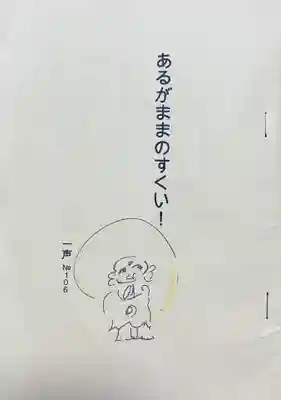 あるがままのすくい！
一声 №106
の